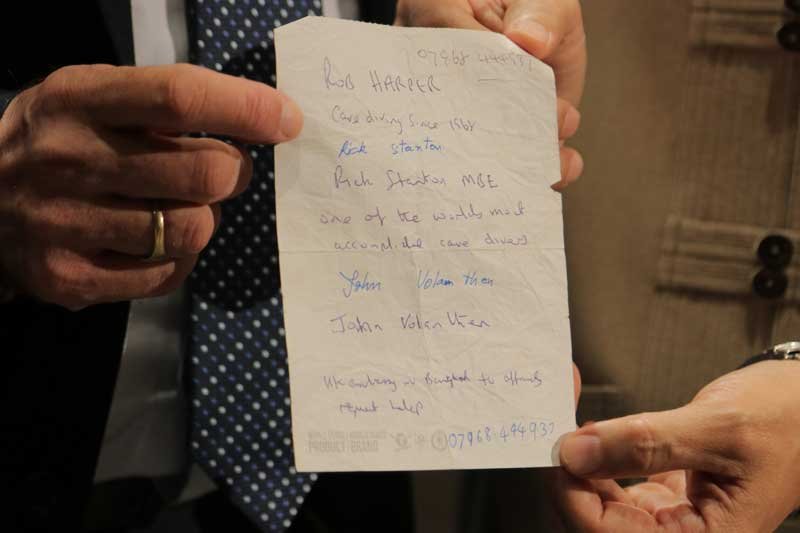 07968 444937
ROB HARPER
Cave diving since 1968
Rick Stanton
Rick Stanton MBE
one of the worlds most
accomplished cave divers
John Volanthen
John Volanthen
UK embassy in Bangkok to
request help
07968-444937